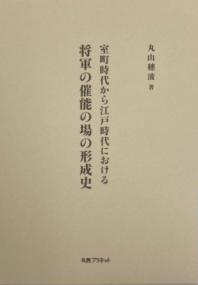 丸山穂波 著
室町時代から江戸時代における
将軍の催能の場の形成史
共同プラネット